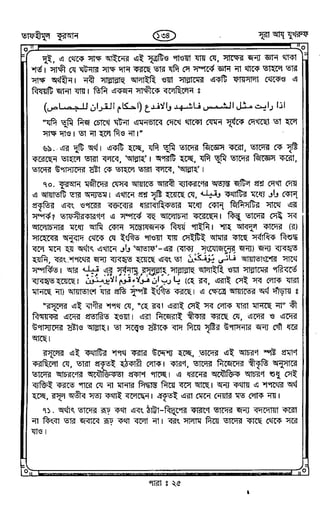 তাফহীমুল কুরআন
১৩৪
সূরা আয্ যুখরুফ
দুই, এ থেকে সাক্ষ্য আইনের এই সূত্রটিও পাওয়া যায় যে, সাক্ষ্যের জন্য জ্ঞান থাকা
শর্ত। সাক্ষী যে ঘটনার সাক্ষ্য দান করছে তার যদি সে সম্পর্কে জ্ঞান না থাকে তাহলে তার
সাক্ষ্য অর্থহীন। নবী সাল্লাল্লাহু আলাইহি ওয়া সাল্লামের একটি ফায়সালা থেকেও এ
বিষয়টি জানা যায়। তিনি একজন সাক্ষীকে বলেছিলেন :
اذا رايت مثل الشمس فاشهد والافدع (احكام القران للجصاص)
"যদি তুমি নিজ চোখে ঘটনা এমনভাবে দেখে থাকো যেমন সূর্যকে দেখছো তা হলে
সাক্ষ্য দাও। তা না হলে দিও না।"
৬৯. এর দুটি অর্থ। একটি হচ্ছে, যদি তুমি তাদের জিজ্ঞেস করো, তাদের কে সৃষ্টি
করেছেন তাহলে তারা বলবে, 'আল্লাহ'। অপরটি হচ্ছে, যদি তুমি তাদের জিজ্ঞেস করো,
তাদের উপাস্যদের স্রষ্টা কে তাহলে তারা বলবে, 'আল্লাহ'।
৭০. কুরআন মজীদের যেসব আয়াতে আরবী ব্যাকরণের অত্যন্ত জটিল প্রশ্ন দেখা দেয়
এ আয়াতটি তার অন্যতম। এখানে প্রশ্ন সৃষ্টি হয়েছে যে, وقيله কথাটির মধ্যে واو কোন
প্রকৃতির এবং ওপরের বক্তব্যের ধারাবাহিকতার মধ্যে কোন্ জিনিসটির সাথে এর
সম্পর্ক? তাফসীরকারগণ এ সম্পর্কে বহু আলোচনা করেছেন। কিন্তু তাদের সেই সব
আলোচনার মধ্যে আমি কোন সন্তোষজনক বিষয় পাইনি। শাহ আবদুল কাদের (র)
সাহেবের অনুবাদ থেকে যে ইংগিত পাওয়া যায় সেইটিই আমার কাছে সর্বাধিক বিশুদ্ধ
বলে মনে হয় অর্থাৎ এখানে واو
হয়নি, বরং শপথের জন্য ব্যবহৃত হয়েছে এবং তা فانى يؤفكون আয়াতাংশের সাথে
সম্পর্কিত। আর قيله এর সর্বনাম রসূলুল্লাহ সাল্লাল্লাহু আলাইহি ওয়া সাল্লামের পরিবর্তে
ব্যবহৃত হয়েছে। يارب ان هؤلاء قوم لايؤمنون (হে রব, এরাই সেই সব লোক যারা
মানছে না) আয়াতাংশ যার প্রতি সুস্পষ্ট ইংগিত করছে। এ ক্ষেত্রে আয়াতটির অর্থ দাঁড়ায় :
"রসূলের এই বাণীর শপথ যে, "হে রব! এরাই সেই সব লোক যারা মানছে না" কী
বিস্ময়কর এদের প্রতারিত হওয়া। এরা নিজেরাই স্বীকার করছে যে, এদের ও এদের
উপাস্যদের স্রষ্টাও আল্লাহ। তা সত্ত্বেও স্রষ্টাকে বাদ দিয়ে সৃষ্টির উপাসনার জন্য গোঁ ধরে
আছে।
রসূলের এই কথাটির শপথ করার উদ্দেশ্য হচ্ছে, তাদের এই আচরণ স্পষ্ট প্রমাণ
করছিলো যে, তারা প্রকৃতই হঠকারী লোক। কারণ, তাদের নিজেদের স্বীকৃতি অনুসারে
তাদের আচরণের অযৌক্তিকতা প্রকাশ পাচ্ছে। এ ধরনের অযৌক্তিক আচরণ শুধু সেই
ব্যক্তিই করতে পারে যে না মানার সিদ্ধান্ত নিয়ে বসে আছে। অন্য কথায় এ শপথের অর্থ
হচ্ছে, রসূল অতীব সত্য কথাই বলেছেন। প্রকৃতই এরা মেনে নেয়ার মত লোক নয়।
৭১. অর্থাৎ তাদের রূঢ় কথা এবং ঠাট্টা-বিদ্রূপের কারণে তাদের জন্য বদদোয়া করো
না কিংবা তার জবাবে রূঢ় কথা বলো না। বরং সালাম দিয়ে তাদের কাছে থেকে সরে
যাও।
পারা : ২৫